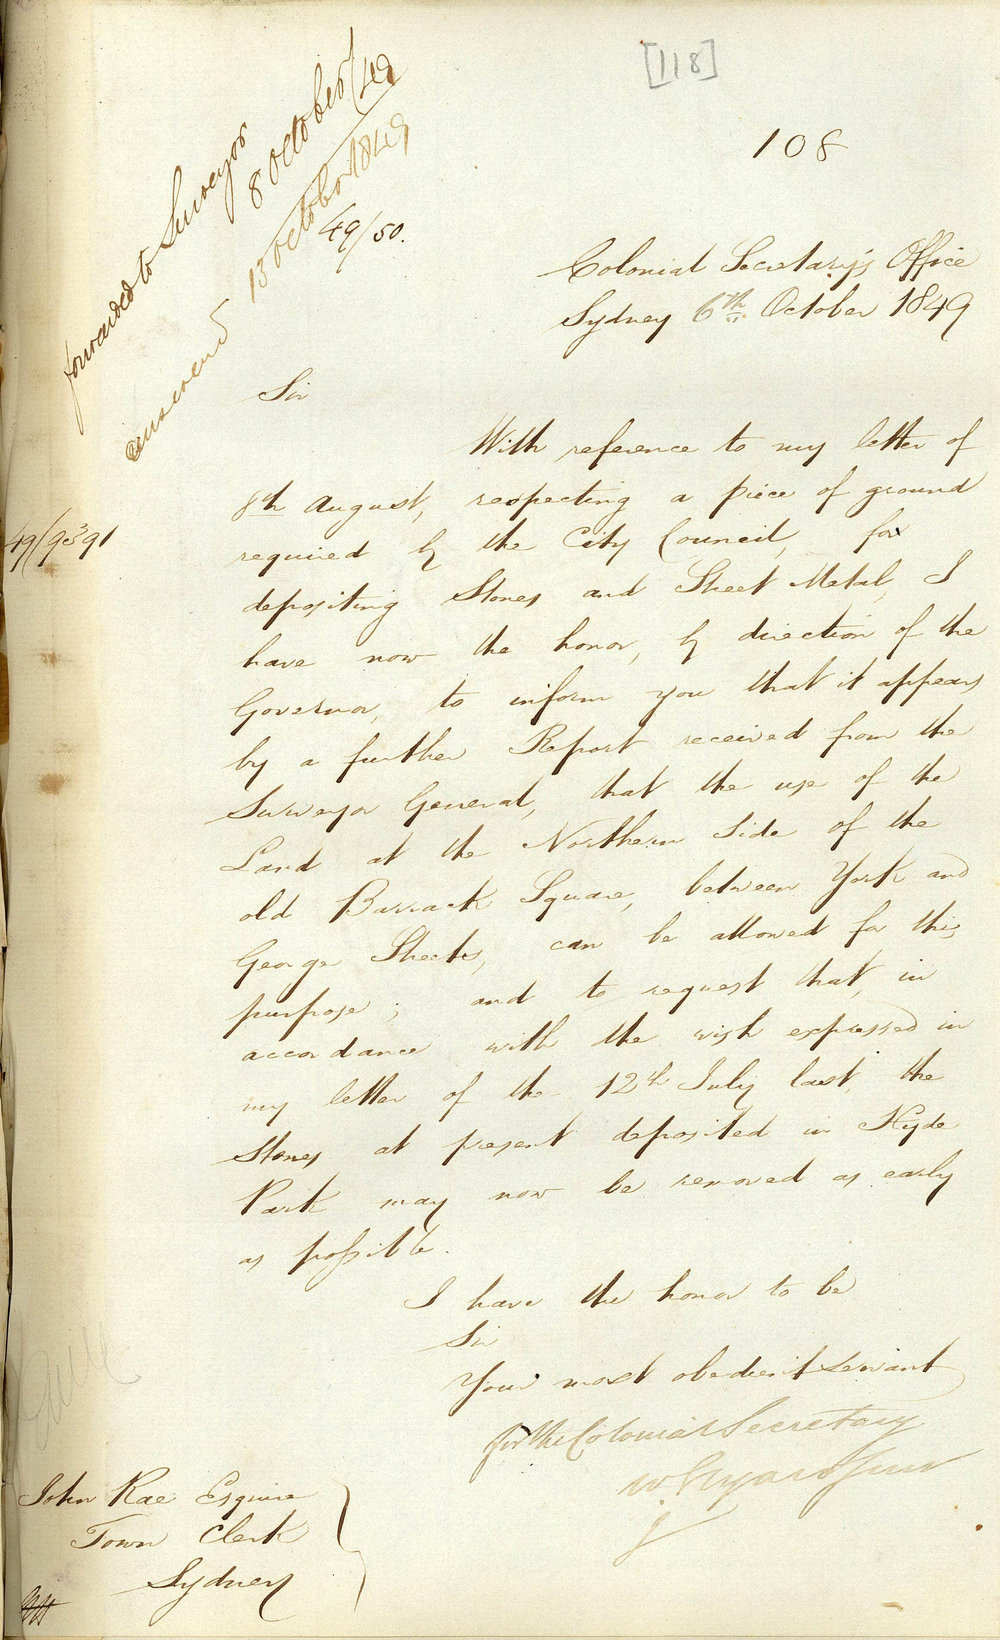 [118]
108
forwarded to Surveyor
8 October /49
answered 13 October 1849
49/50.
Colonial Secretary's Office
Sydney 6th October 1849
Sir
With reference to my letter of
8th August, respecting a piece of ground
49/9391
required by the City Council, for
depositing Stones and Sheet Metal, I
have now the honor, by direction of the
Governor, to inform you that it appears
by a further Report received from the
Surveyor General, that the use of the
Land at the Northern Side of the
old Barrack Square, between York and
George Streets, can be allowed for this
purpose; and to request that, in
accordance with the wish expressed in
my letter of the 12th July last, the
Stones at present deposited in Hyde
Park may now be removed as early
as possible.
I have the honor to be
Sir
Your most obedient Servant
for the Colonial Secretary
W Elyard Junr
John Rae Esquire
Town Clerk
Sydney